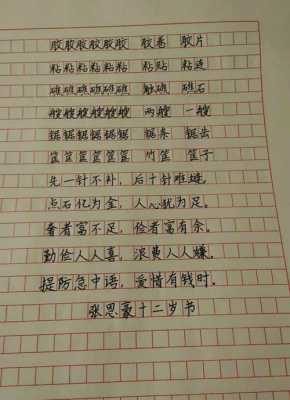 胶胶胶胶胶胶 胶卷 胶片
粘粘粘粘粘粘 粘贴 粘连
礁礁礁礁礁礁 触礁 礁石
艘艘艘艘艘艘 两艘 一艘
锯锯锯锯锯锯 锯条 锯
筐筐筐筐筐筐 竹筐 筐子
先一针不补，后十针难缝。
点石化为金，人心犹为足。
奢者富不足，俭者富有余。
勤俭人人喜，浪费人人嫌。
提防急中语，爱惜有钱时。
张思豪十二岁书